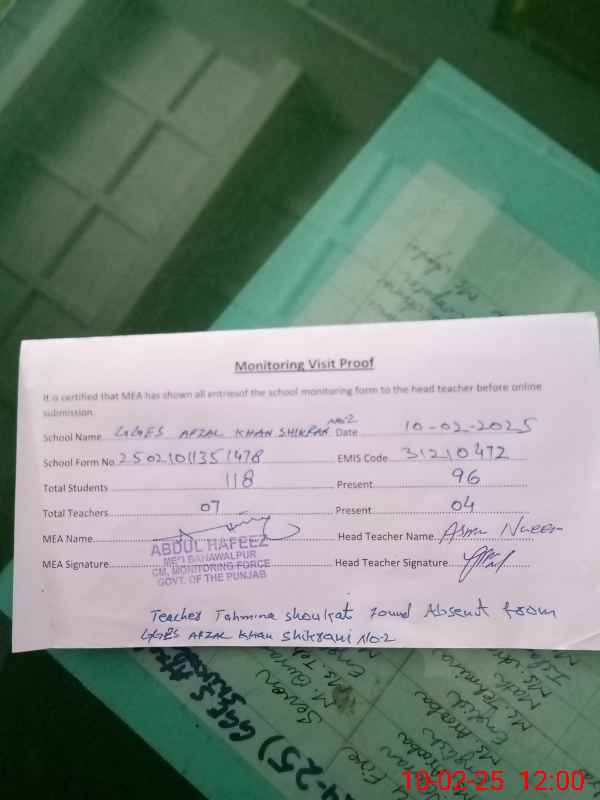 Monitoring Visit Proof
It is certified that MEA has shown all entriesof the school monitoring form to the head teacher before online
submission
School Name GGES AFZAL KHAN SHIKRANI NO.2 Date 10-02-2025
School Form No 25021011351478 EMIS Code 31210472
Total Students 118 Present 96
Total Teachers 07 Present 04
MEA Name Head Teacher Name Asma Naeem
ABDUL HAFEEZ
MEA BAHAWALPUR
MEA Signature Head Teacher Signature
CM, MONITORING FORCE
GOVT. OF THE PUNJAB
Teacher Tahmina shoukat found Absent from
GGES AFZAL Khan Shikrani No.2
24-25) GGES
Seven
Five
English
Math
10-02-25 12:00